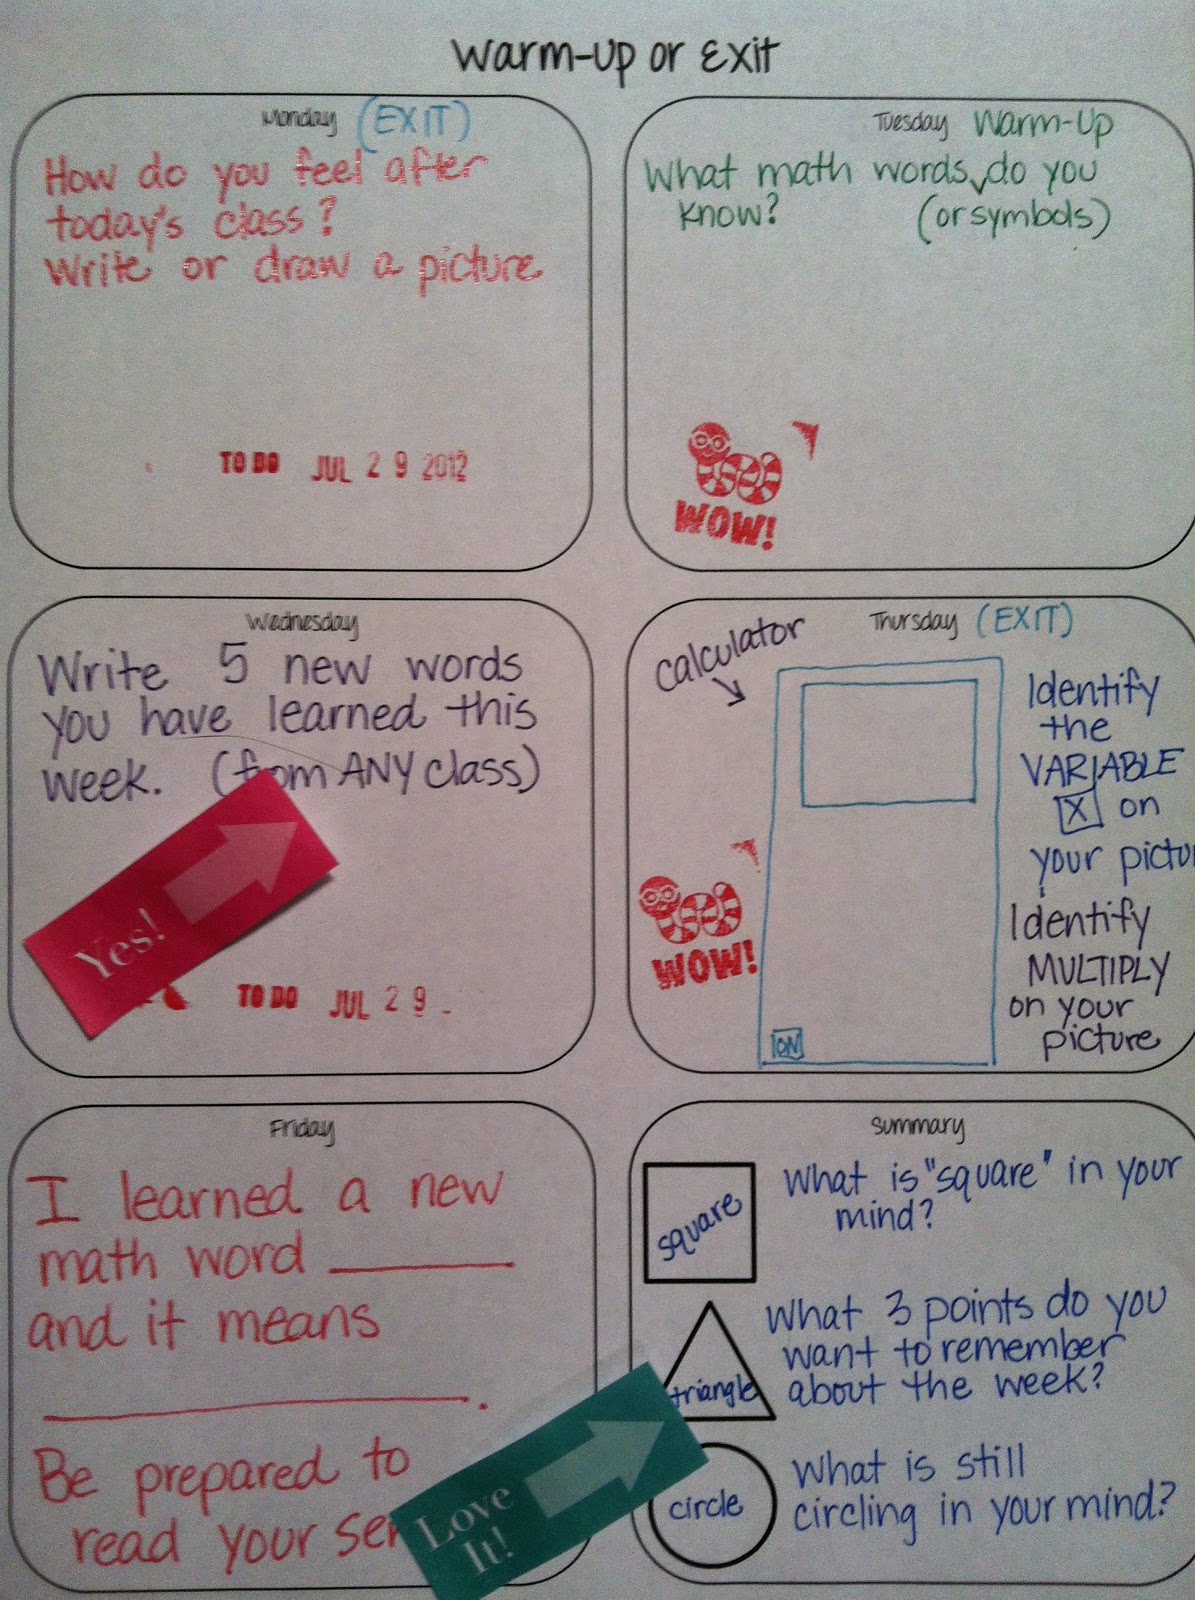 Warm-up or Exit
Monday (EXIT)
How do you feel after
today's class?
Write or draw a picture
TO DO JUL 29 2012
Tuesday Warm-Up
What math words do you
know? (or symbols)
WOW!
Wednesday
Write 5 new words
you have learned this
week. (from ANY class)
Yes!
TO DO JUL 29
Thursday (EXIT)
calculator
Identify
the
VARIABLE
X on
your pictu
Identify
MULTIPLY
on your
picture
WOW!
ON
Friday
I learned a new
math word
and it means
.
Be prepared to
read your sen
Love
It!
Summary
square
What is "square" in your
mind?
triangle
What 3 points do you
want to remember
about the week?
circle
What is still
circling in your mind?